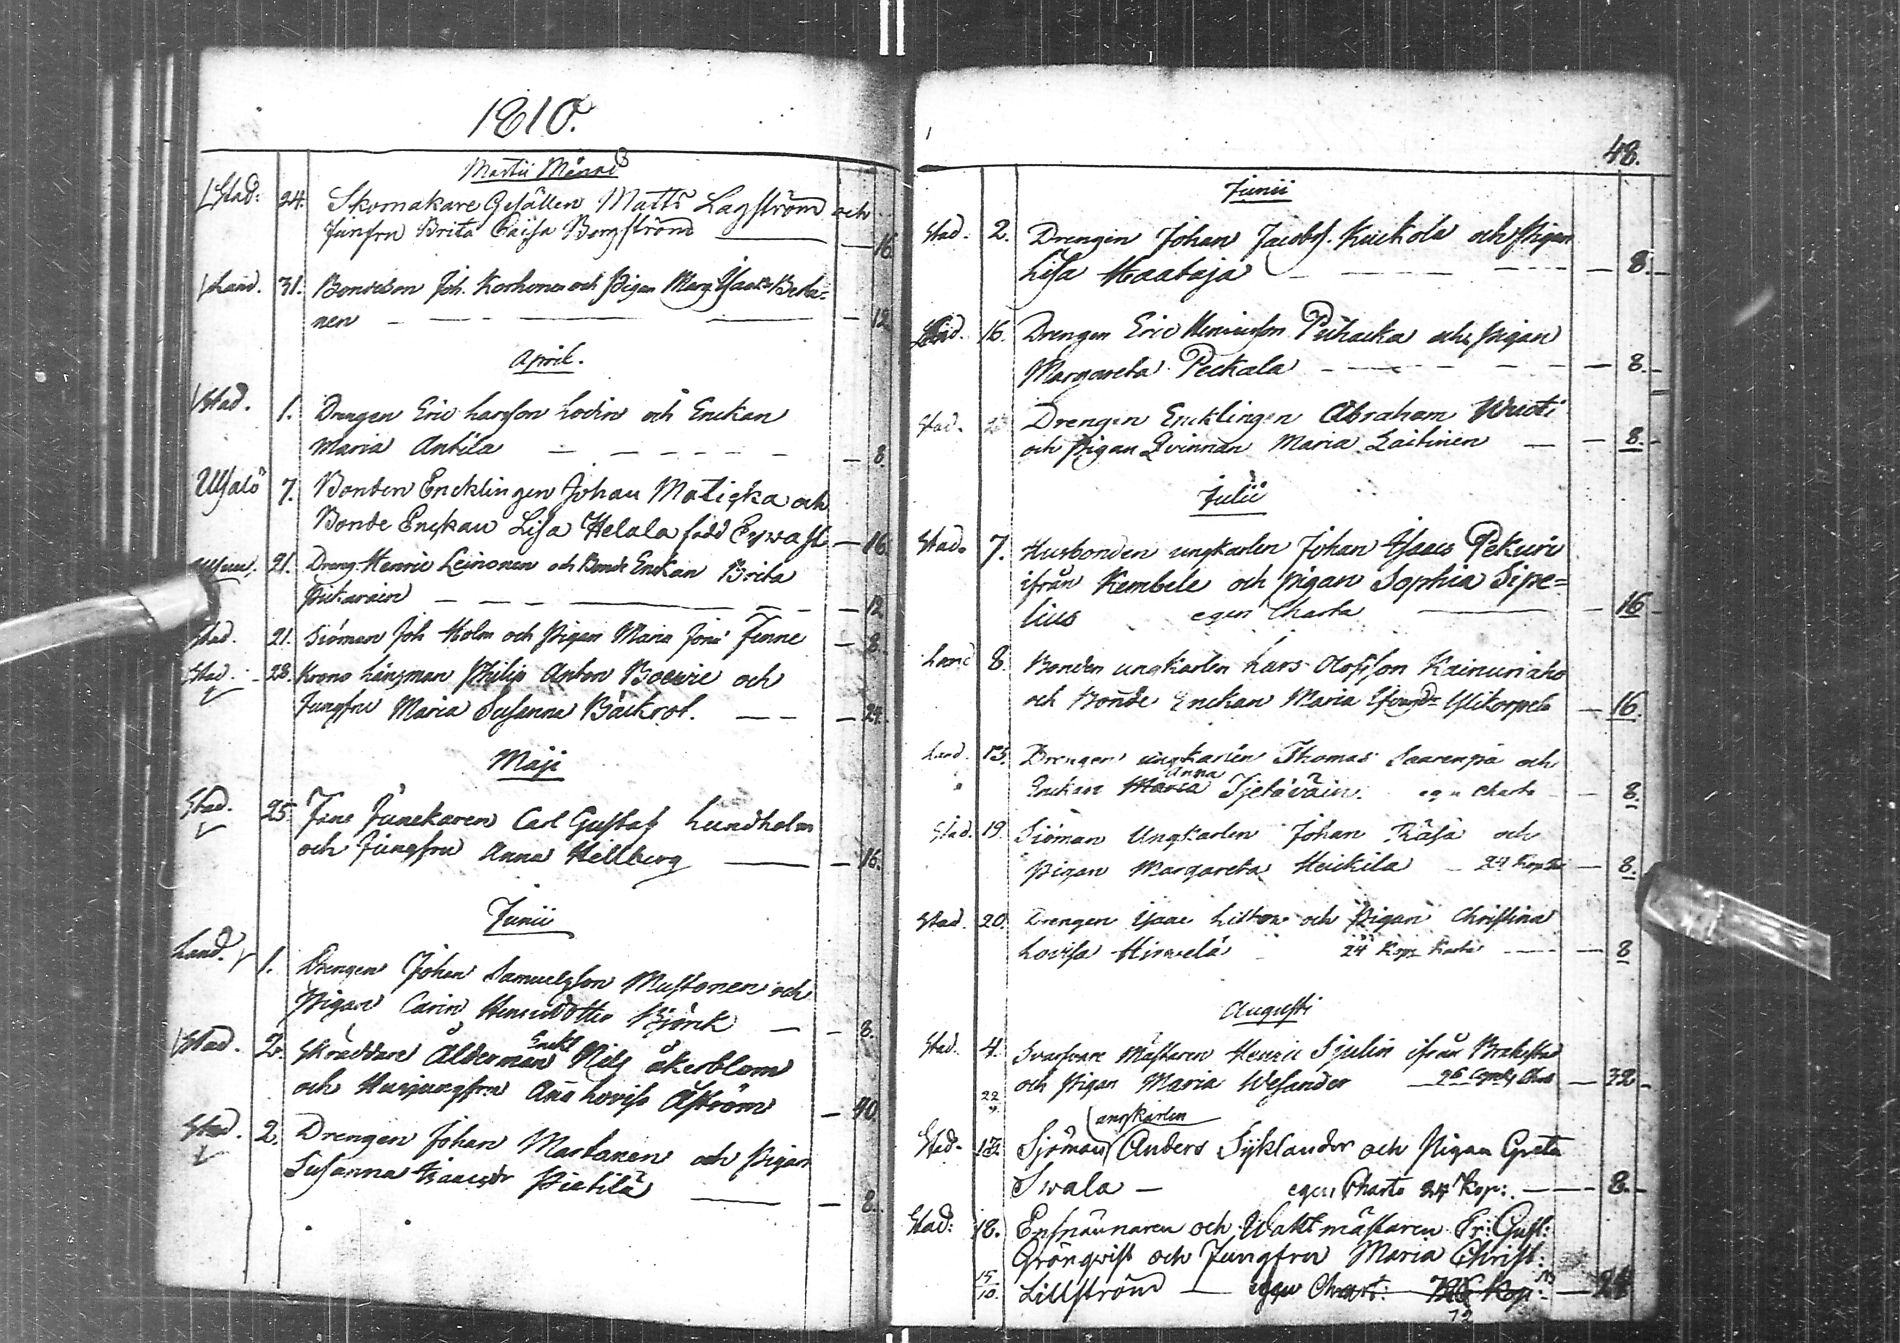 1810.
Martii Månad
Stad. 24. Skomakare Gesällen Matts Lagström och
Junfru Brita Caisa Bergström — 16.
Land. 31. Bondeson Joh. Korhonen och Pigan Marg. Isaacsd.
nen — 12.
April.
Stad. 1. Drengen Eric Larsson Lodin och Enckan
Maria Antila — 8.
Uhalo 7. Bonden Encklingen Johan Maticka och
Bonde Enckan Lisa Helala född — 16.
21. Dreng. Henric Leinonen och Bonde Enckan Brita
— 12.
Stad. 21. Siöman Joh Holm och Pigan Maria Fenne — 8.
Stad. 28. Krono Länsman Philip Anton och
Jungfru Maria Susanna Bäckrot. — 24.
Maji
Stad. 25. Carl Gustaf Lundholm
och Jungfru Anna Hellberg — 16.
Junii
Land. 1. Drengen Johan Samuelsson Mustonen och
Pigan Carin Henricsdotter Björck — 8.
Enckl
Stad. 2. Skräddare Ålderman Nils Åkerblom
och Husjungfru Aña Lovisa Åström — 40.
Stad. 2. Drengen Johan Martanen och Pigan
Susanna Isaacsdr Pietilä — 8.
48.
Junii
Stad. 2. Drengen Johan Jacobss. Kuckola och Pigan
Lisa Haataja — 8.
16. Drengen Eric Henricsson och Pigan
Margareta Peckala — 8.
Stad. Drengen Encklingen Abraham
och Pigan Qvinnan Maria Laitinen — 8.
Julii
Stad. 7. Husbonden ungkarlen Johan Isacs Pekuri
ifrån Kembele och pigan Sophia Sipe=
lius egen Charta — 16
Land 8. Bonden ungkarlen Lars Olofsson Kainuriaho
och Bonde Enckan Maria Ylikorpela — 16.
Land. 15. Drengen ungkarlen Thomas Saarenpä och
Anna
Enckan Maria Tjetäväin. egen charta — 8.
Stad. 19. Siöman Ungkarlen Johan Räsä och
Pigan Margareta Heickila — 24 Kop. — 8.
Stad. 20. Drengen Isaac Litton och Pigan Christina
Lovisa Hirvelä 24 Kop. Karta — 8
Augusti
Stad. 4. Svarfvare Mästaren Henric Sjulin ifrån Brahestad
och Pigan Maria Wesander — 32
22
ungkarlen
Stad. Sjöman Anders Syklander och Pigan Greta
Swala — egen Charta 24 Kop: — 8.
Stad: 18. och Waktmästaren Fr: Gust:
Grönqvist och Jungfru Maria Christ:
15/10 Lillström — egen Chart: Kop: — 24
72